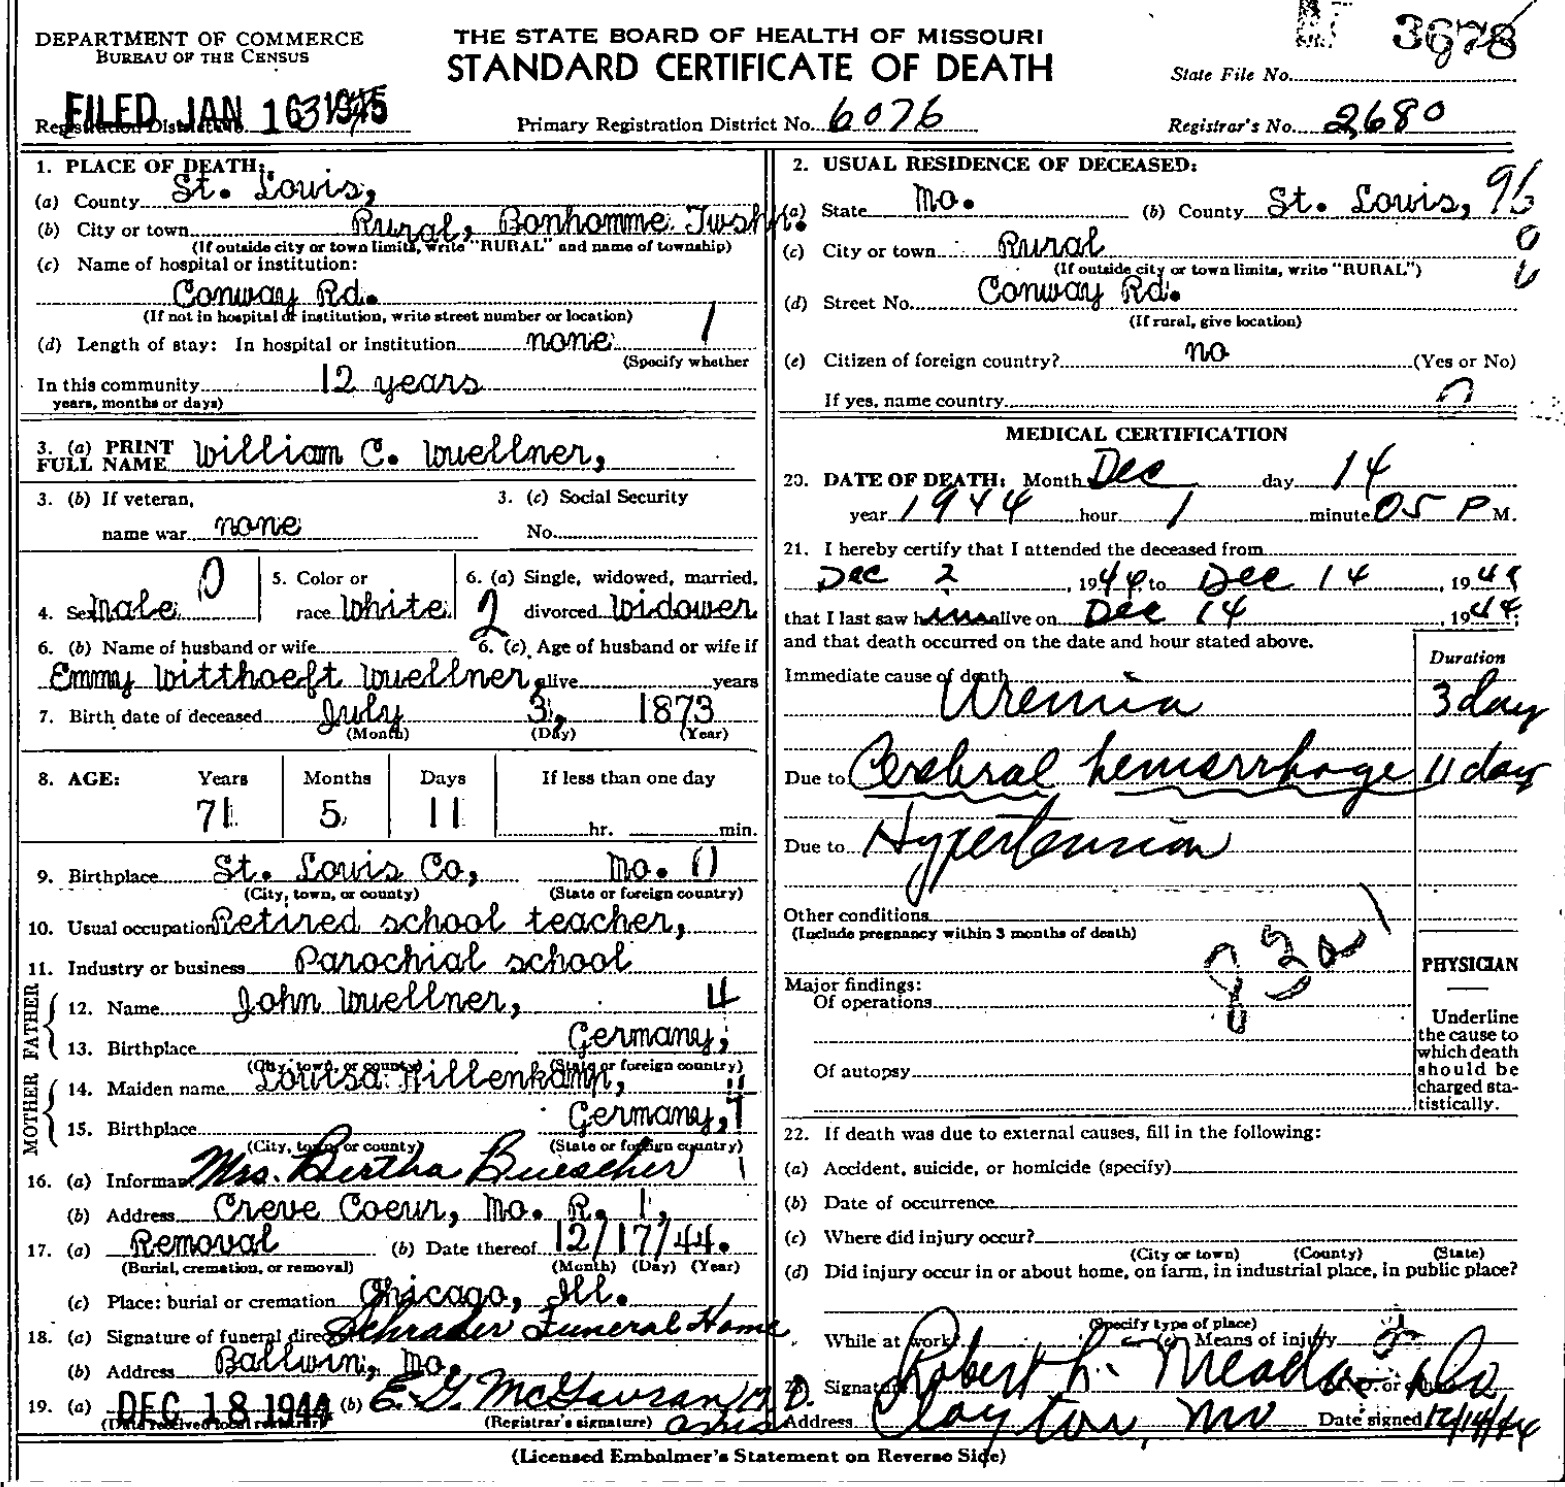 DEPARTMENT OF COMMERCE
BUREAU OF THE CENSUS
THE STATE BOARD OF HEALTH OF MISSOURI
STANDARD CERTIFICATE OF DEATH
3678
State File No.
FILED JAN 16 1945
Registration District No.
Primary Registration District No. 6076
Registrar's No. 2680
1. PLACE OF DEATH:
(a) County St. Louis,
(b) City or town Rural, Bonhomme Twshp.
(If outside city or town limits, write "RURAL" and name of township)
(c) Name of hospital or institution:
Conway Rd.
(If not in hospital or institution, write street number or location)
(d) Length of stay: In hospital or institution none 1
(Specify whether
In this community 12 years
years, months or days)
3. (a) PRINT
FULL NAME William C. Wuellner,
3. (b) If veteran,
name war none
3. (c) Social Security
No.
4. Sex Male 0
5. Color or
race White
6. (a) Single, widowed, married,
2 divorced Widower
6. (b) Name of husband or wife
Emmy Witthoeft Wuellner,
6. (c) Age of husband or wife if
alive years
7. Birth date of deceased July 3, 1873
(Month) (Day) (Year)
8. AGE: Years Months Days If less than one day
71 5 11 hr. min.
9. Birthplace St. Louis Co, Mo. 0
(City, town, or county) (State or foreign country)
10. Usual occupation Retired school teacher,
11. Industry or business Parochial school
FATHER
12. Name John Wuellner, 4
13. Birthplace Germany,
(City, town, or county) (State or foreign country)
MOTHER
14. Maiden name Louisa Hillenkamp,
15. Birthplace Germany,
(City, town or county) (State or foreign country)
16. (a) Informant Mrs. Bertha Buescher
(b) Address Creve Coeur, Mo. R. 1,
17. (a) Removal (b) Date thereof 12/17/44.
(Burial, cremation, or removal) (Month) (Day) (Year)
(c) Place: burial or cremation Chicago, Ill.
18. (a) Signature of funeral director Schrader Funeral Home
(b) Address Ballwin, Mo.
19. (a) DEC 18 1944 (b) E. G. McGavran M.D.
(Date received local registrar) (Registrar's signature)
2. USUAL RESIDENCE OF DECEASED:
(a) State Mo. (b) County St. Louis,
(c) City or town Rural
(If outside city or town limits, write "RURAL")
(d) Street No. Conway Rd.
(If rural, give location)
(e) Citizen of foreign country? no (Yes or No)
If yes, name country
MEDICAL CERTIFICATION
20. DATE OF DEATH: Month Dec day 14
year 1944 hour 1 minute 05 P M.
21. I hereby certify that I attended the deceased from
Dec 2, 1944, to Dec 14, 1944
that I last saw him alive on Dec 14, 1944;
and that death occurred on the date and hour stated above.
Duration
Immediate cause of death
Uremia 3 day
Due to Cerebral hemorrhage 11 day
Due to Hypertension
Other conditions
(Include pregnancy within 3 months of death)
Major findings:
Of operations
Of autopsy
PHYSICIAN
Underline
the cause to
which death
should be
charged sta-
tistically.
22. If death was due to external causes, fill in the following:
(a) Accident, suicide, or homicide (specify)
(b) Date of occurrence
(c) Where did injury occur?
(City or town) (County) (State)
(d) Did injury occur in or about home, on farm, in industrial place, in public place?
(Specify type of place)
While at work? (e) Means of injury
Signature Robert L. Meador
Address Clayton, Mo Date signed 12/14/44
(Licensed Embalmer's Statement on Reverse Side)